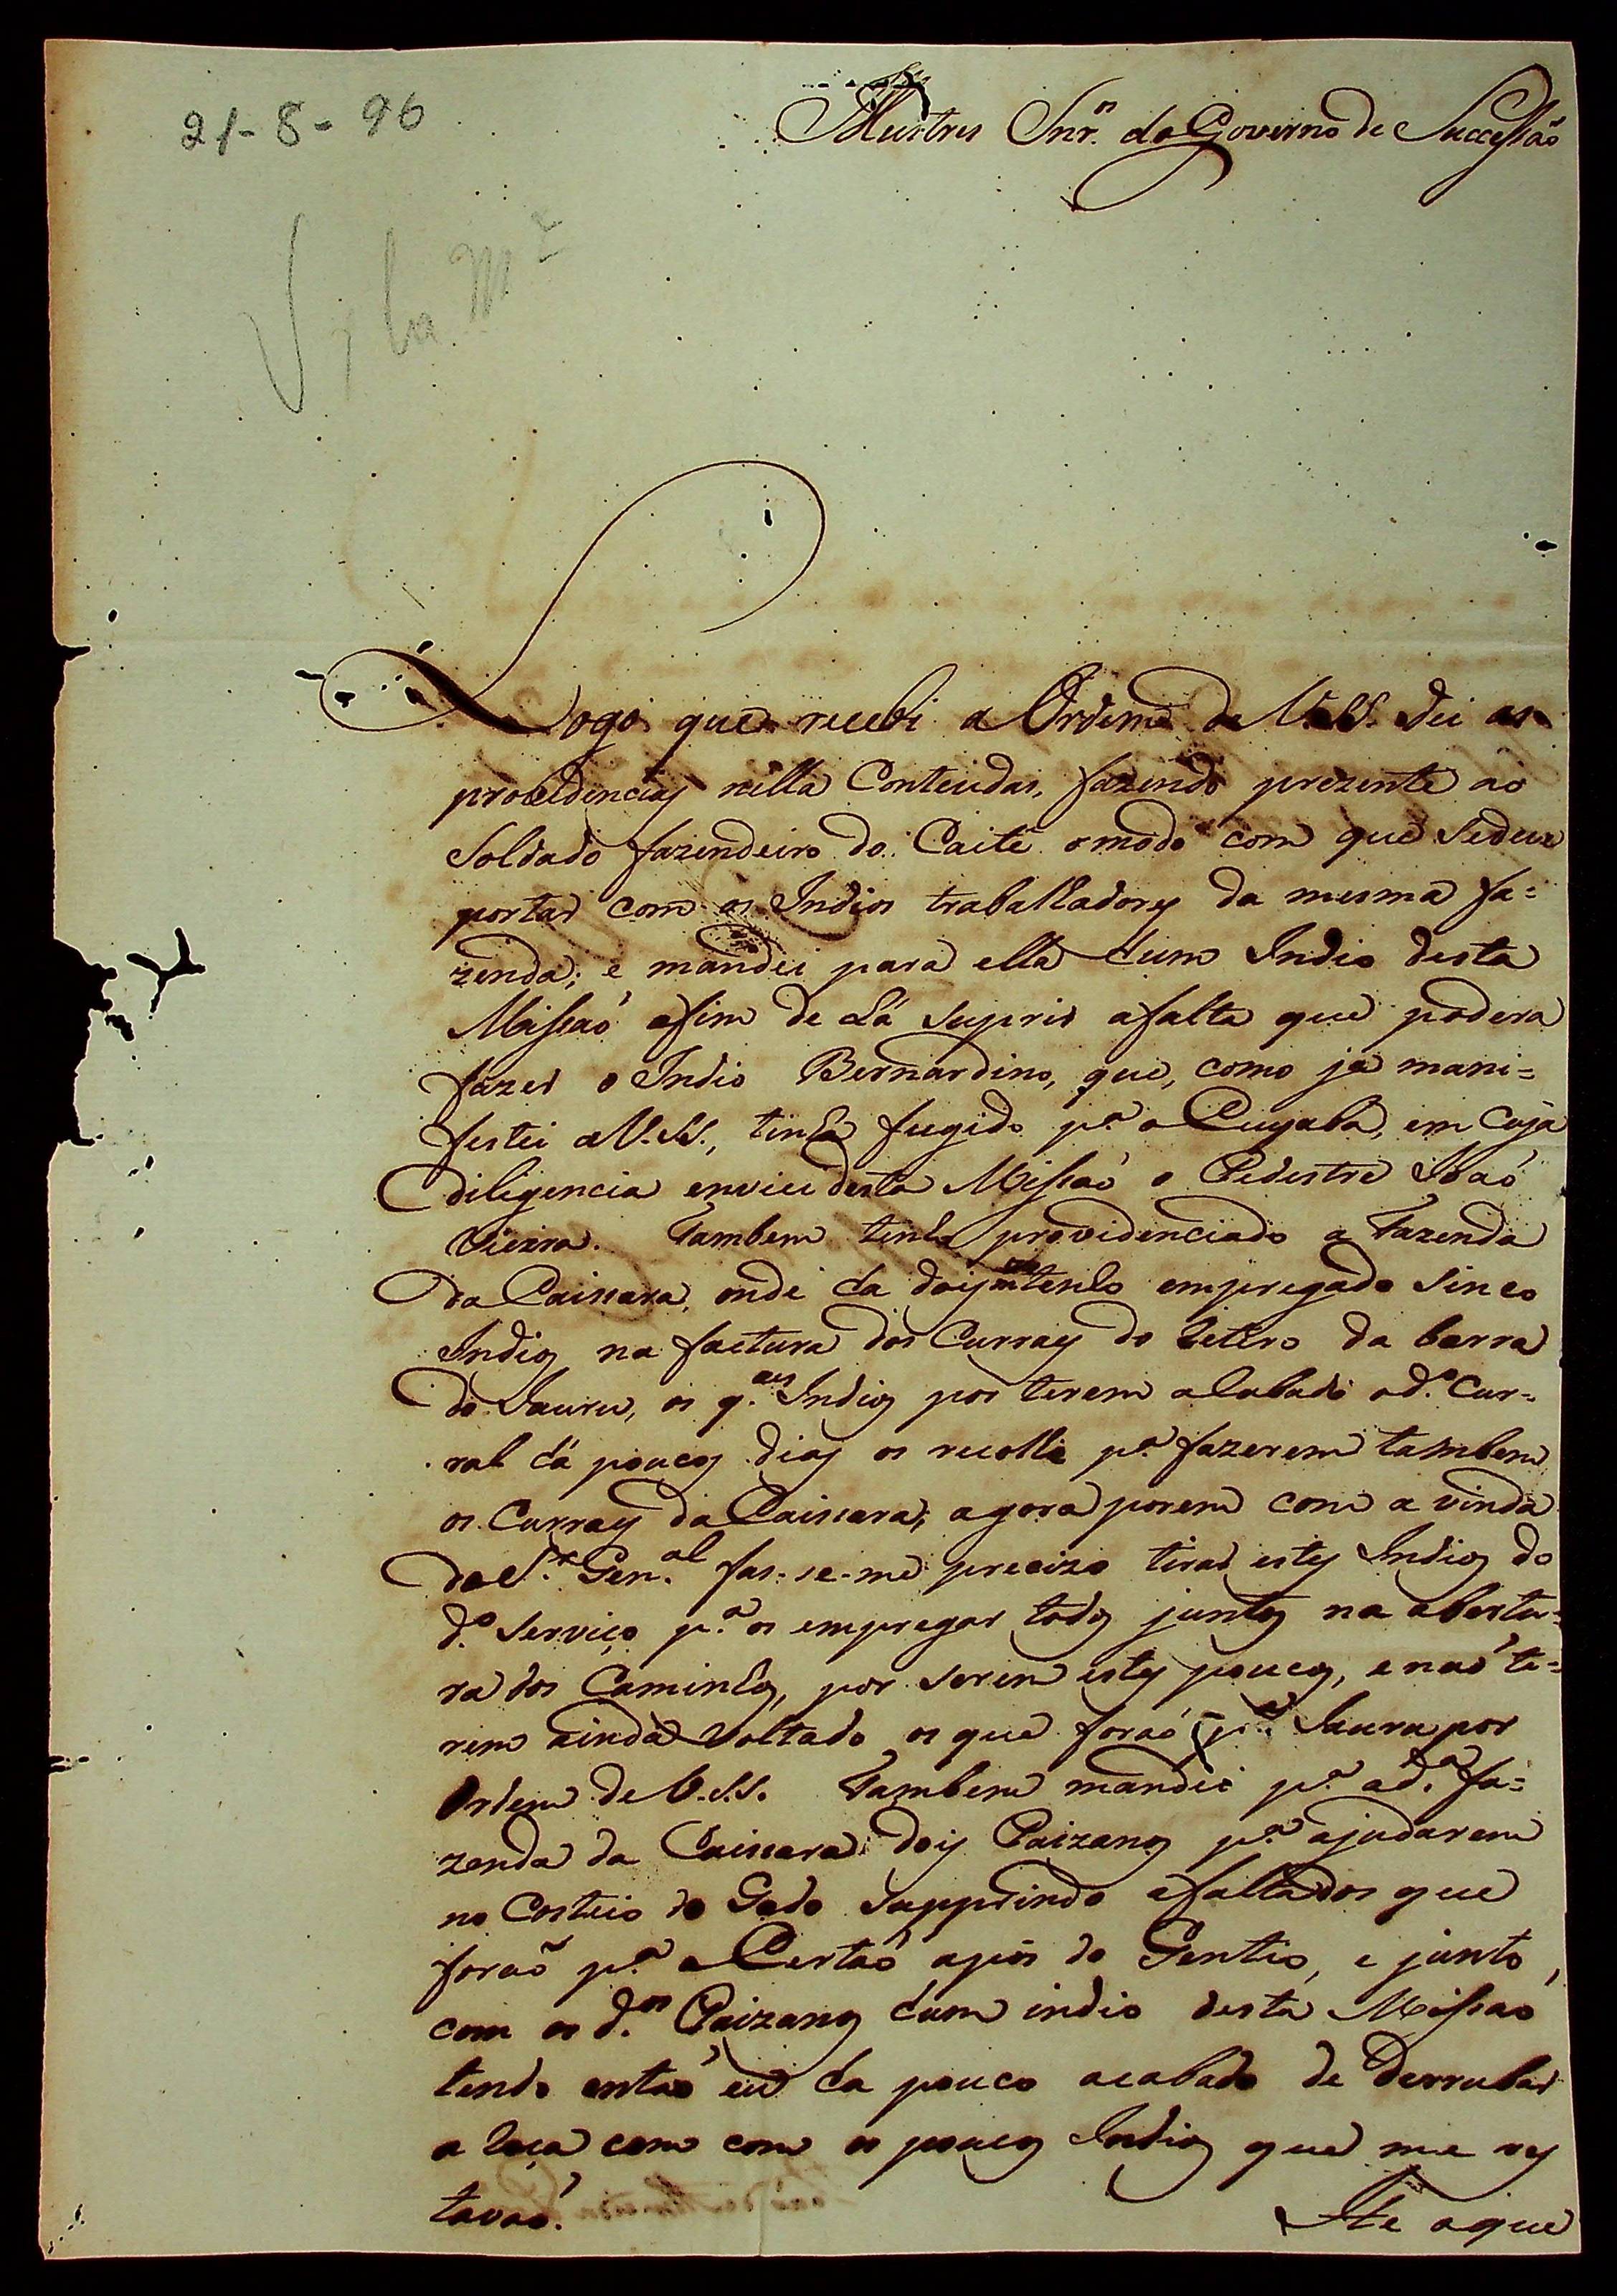 21-8-96
Illustres Snr.es do Governo de Successão
Logo que recebi a Ordem de V.SS. dei as
providencias nella Conteudas, fazendo prezente ao
Soldado fazendeiro do Caité o modo com que se deve
portar com os Indios trabalhadores da mesma fa=
zenda; e mandei para ella hum Indio desta
Missaõ afim de Lá suprir a falta que podera
fazer o Indio Bernardino, que, como já mani=
festei a V.SS., tinha fugido p.a o Cuyabá, em Cuja
diligencia enviei desta Missaõ o Pedestre Joaõ
Vieira. Tambem tenho providenciado a Fazenda
da Caissara, onde ha dois mezes tenho empregado Sinco
Indios na factura dos Currays do Retiro da barra
do Jauru, os q.aes Indios por terem acabado o d.o Cur=
ral há poucos dias os recolhi p.a fazerem tambem
os Currays da Caissara; agora porem com a vinda
do S.r Gen.al fas-se-me precizo tirar estes Indios do
d.o Serviço p.a os empregar todos juntos na abertu=
ra dos Caminhos, por serem estes poucos, e naõ te=
rem ainda Voltado os que foraõ p.a Jauru por
Ordem de V.SS. Tambem mandei p.a a d.a Fa=
zenda da Caissara dois Paizanos p.a ajudarem
no Costeio do Gado Supprindo a falta dos que
foraõ p.a o Certaõ apos do Gentio, e junto
com os d.os Paizanos hum indio desta Missaõ
tendo entaõ eu ha pouco acabado de derrubar
a Roça com com os poucos Indios que me res
tavaõ.
Ate aque